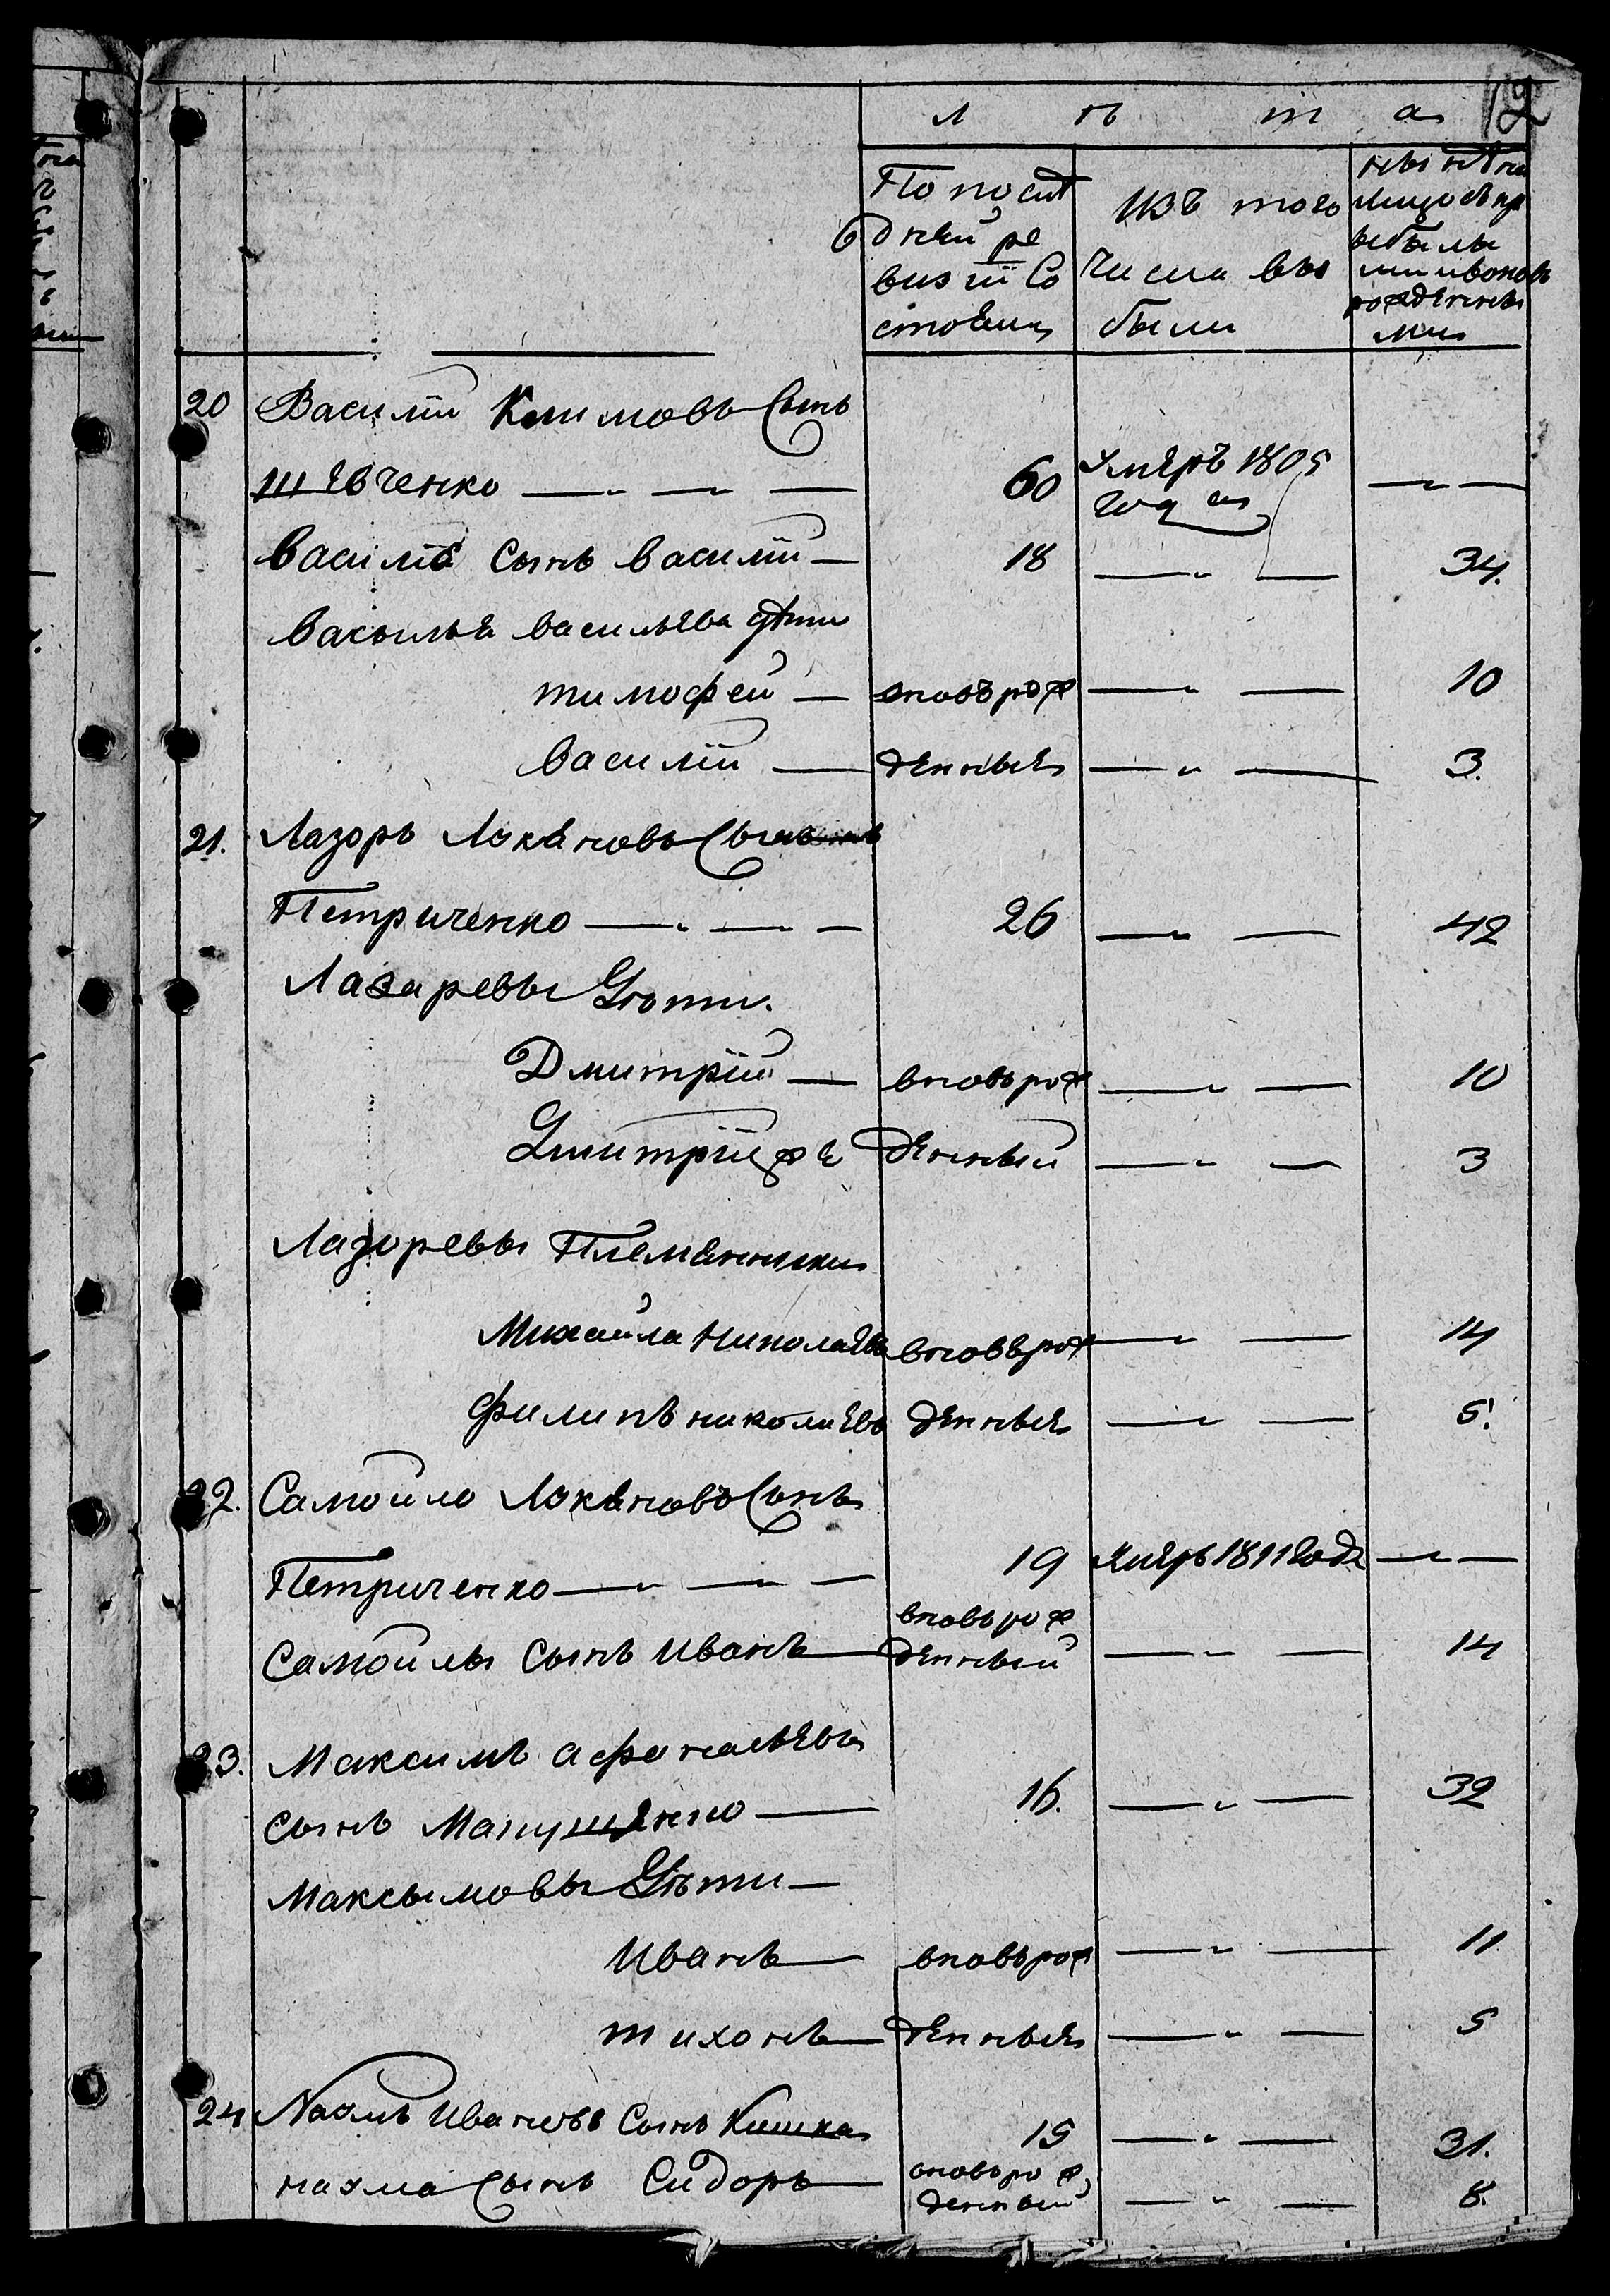 12
л ѣ т а
По послѣ
дней ре
визіи Со
стояли
изъ того
числа вы
были
нынѣ на
лицо съ пр
ибылы
ми и вновь
рожденны
ми
20 Василій Климовъ Сынъ
Шевченко — 60 умеръ 1805 года —
Василія сынъ василій — 18 — 34.
Васылья васильева дѣти
тимофей — вновъ рож — 10
василій — денные — 3.
21. Лазорь Лукяновъ Сынъ
Петриченко — 26 — 42
Лазаревы Дѣти.
Дмитрій — вновь рож — 10
Дмитрій же денный — 3
Лазоревы Племянники
Михайла Николаевъ вновърож — 14
Филипъ николаевъ денные — 5.
22. Самойло Лукяновъ Сынъ
Петриченко — 19 умеръ 1811 года —
Самойлы Сынъ Иванъ — вновь рож денный — 14
23. Максимъ афанасьевъ
сынъ — 16. — 32
Максымовы Дѣти —
Иванъ — вновь рож — 11
тихонъ — денные — 5
24 Наумъ Ивановъ Сынъ Кишка 15 — 31.
наума Сынъ Сидоръ — вновь рож денный — 8.